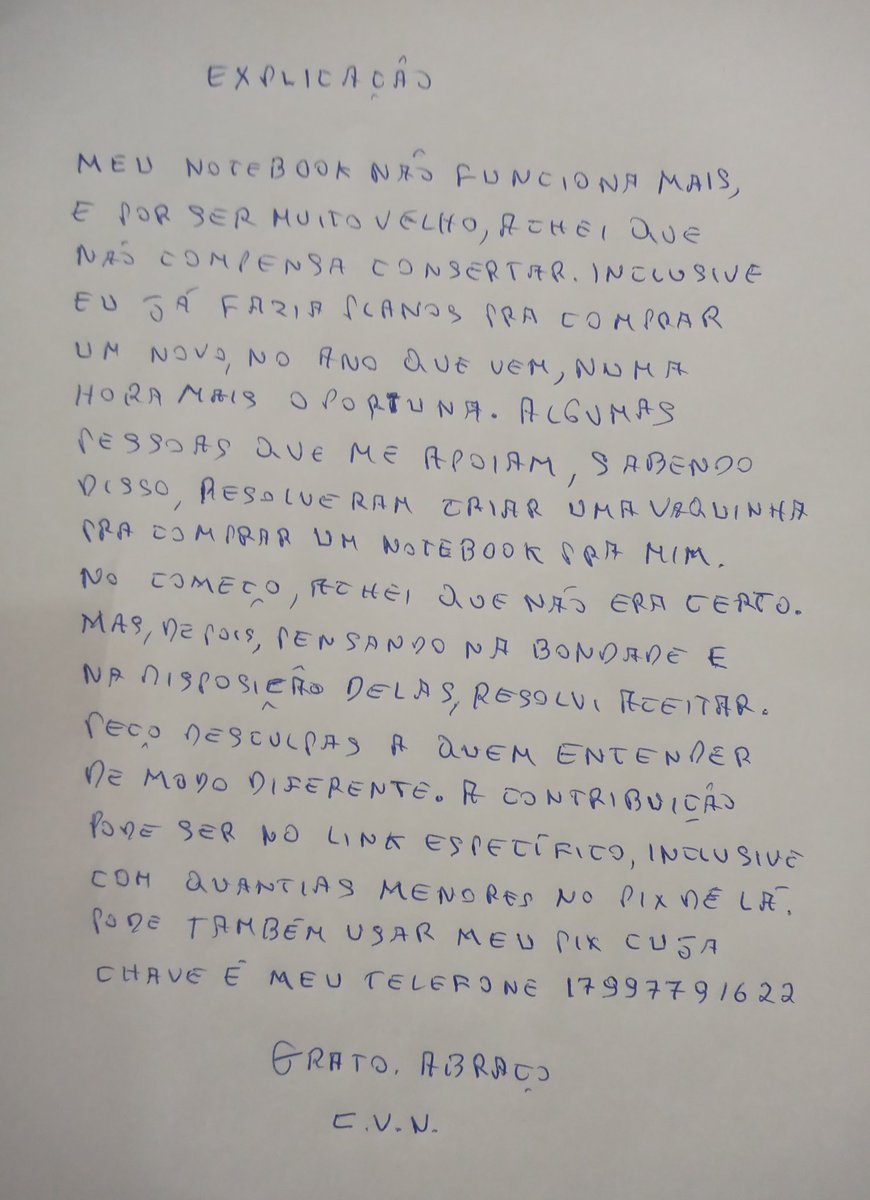 EXPLICAÇÃO
MEU NOTEBOOK NÃO FUNCIONA MAIS,
E POR SER MUITO VELHO, ACHEI QUE
NÃO COMPENSA CONSERTAR. INCLUSIVE
EU JÁ FAZIA PLANOS PRA COMPRAR
UM NOVO, NO ANO QUE VEM, NUMA
HORA MAIS OPORTUNA. ALGUMAS
PESSOAS QUE ME APOIAM, SABENDO
DISSO, RESOLVERAM CRIAR UMA VAQUINHA
PRA COMPRAR UM NOTEBOOK PRA MIM.
NO COMEÇO, ACHEI QUE NÃO ERA CERTO.
MAS, DEPOIS, PENSANDO NA BONDADE E
NA DISPOSIÇÃO DELAS, RESOLVI ACEITAR.
PEÇO DESCULPAS A QUEM ENTENDER
DE MODO DIFERENTE. A CONTRIBUIÇÃO
PODE SER NO LINK ESPECÍFICO, INCLUSIVE
COM QUANTIAS MENORES NO PIX DE LÁ.
PODE TAMBÉM USAR MEU PIX CUJA
CHAVE É MEU TELEFONE 17997791622
GRATO. ABRAÇO
C.V.N.